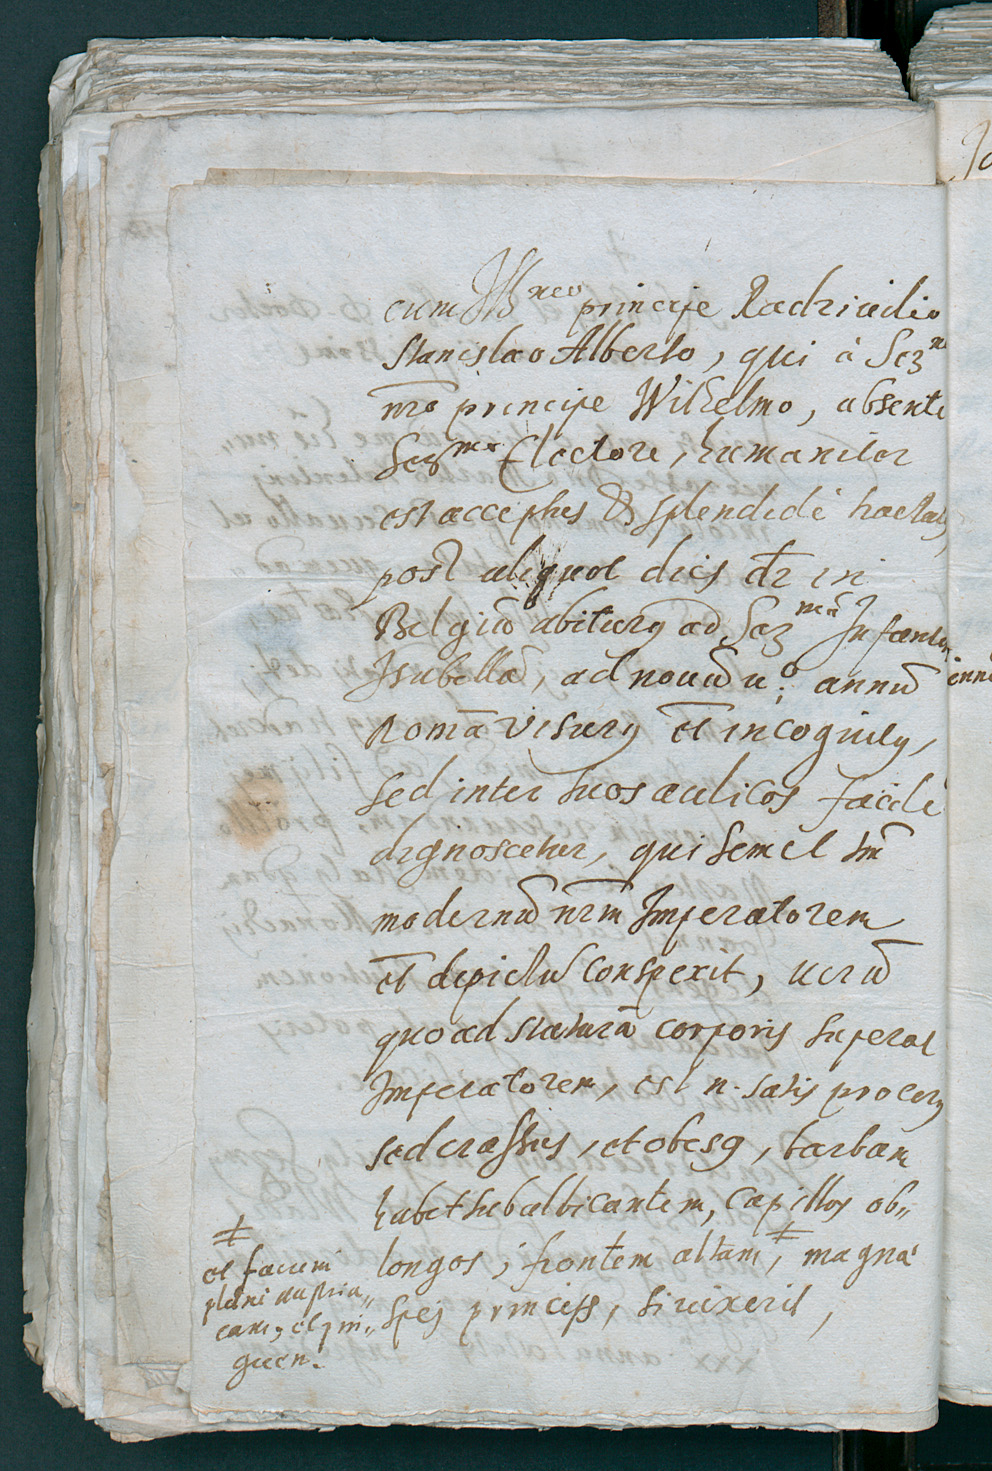 cum Ill<sup>neo</sup> principe Radziuilio
Stanislao Alberto, qui à Ser<sup>m</sup>
nro principe Wilhelmo, absente
Ser<sup>mo</sup> Electore, humaniter
est acceptus & splendidè tractatus,
post aliquot dies dr in
Belgiū abiturus ad Ser<sup>mā</sup> Infantem
Isabellā, ad nouū u.<sup>o</sup> annū
Romā visurus et incognitus,
sed inter suos aulicos facilè
dignoscetur, qui semel Sm̄
modernū nrm̄ Imperatorem
et depictū conspexit, uerū
quo ad staturā corporis superat
Imperatorem, est n. satis procerus
sed crassus, et obesus, barbam
habet subalbicantem, capillos ob„
longos; frontem altam, ǂ magnae
spei princeps, si uixerit,
ǂ
et faciem
planè austria„
cam, et pin„
guem.